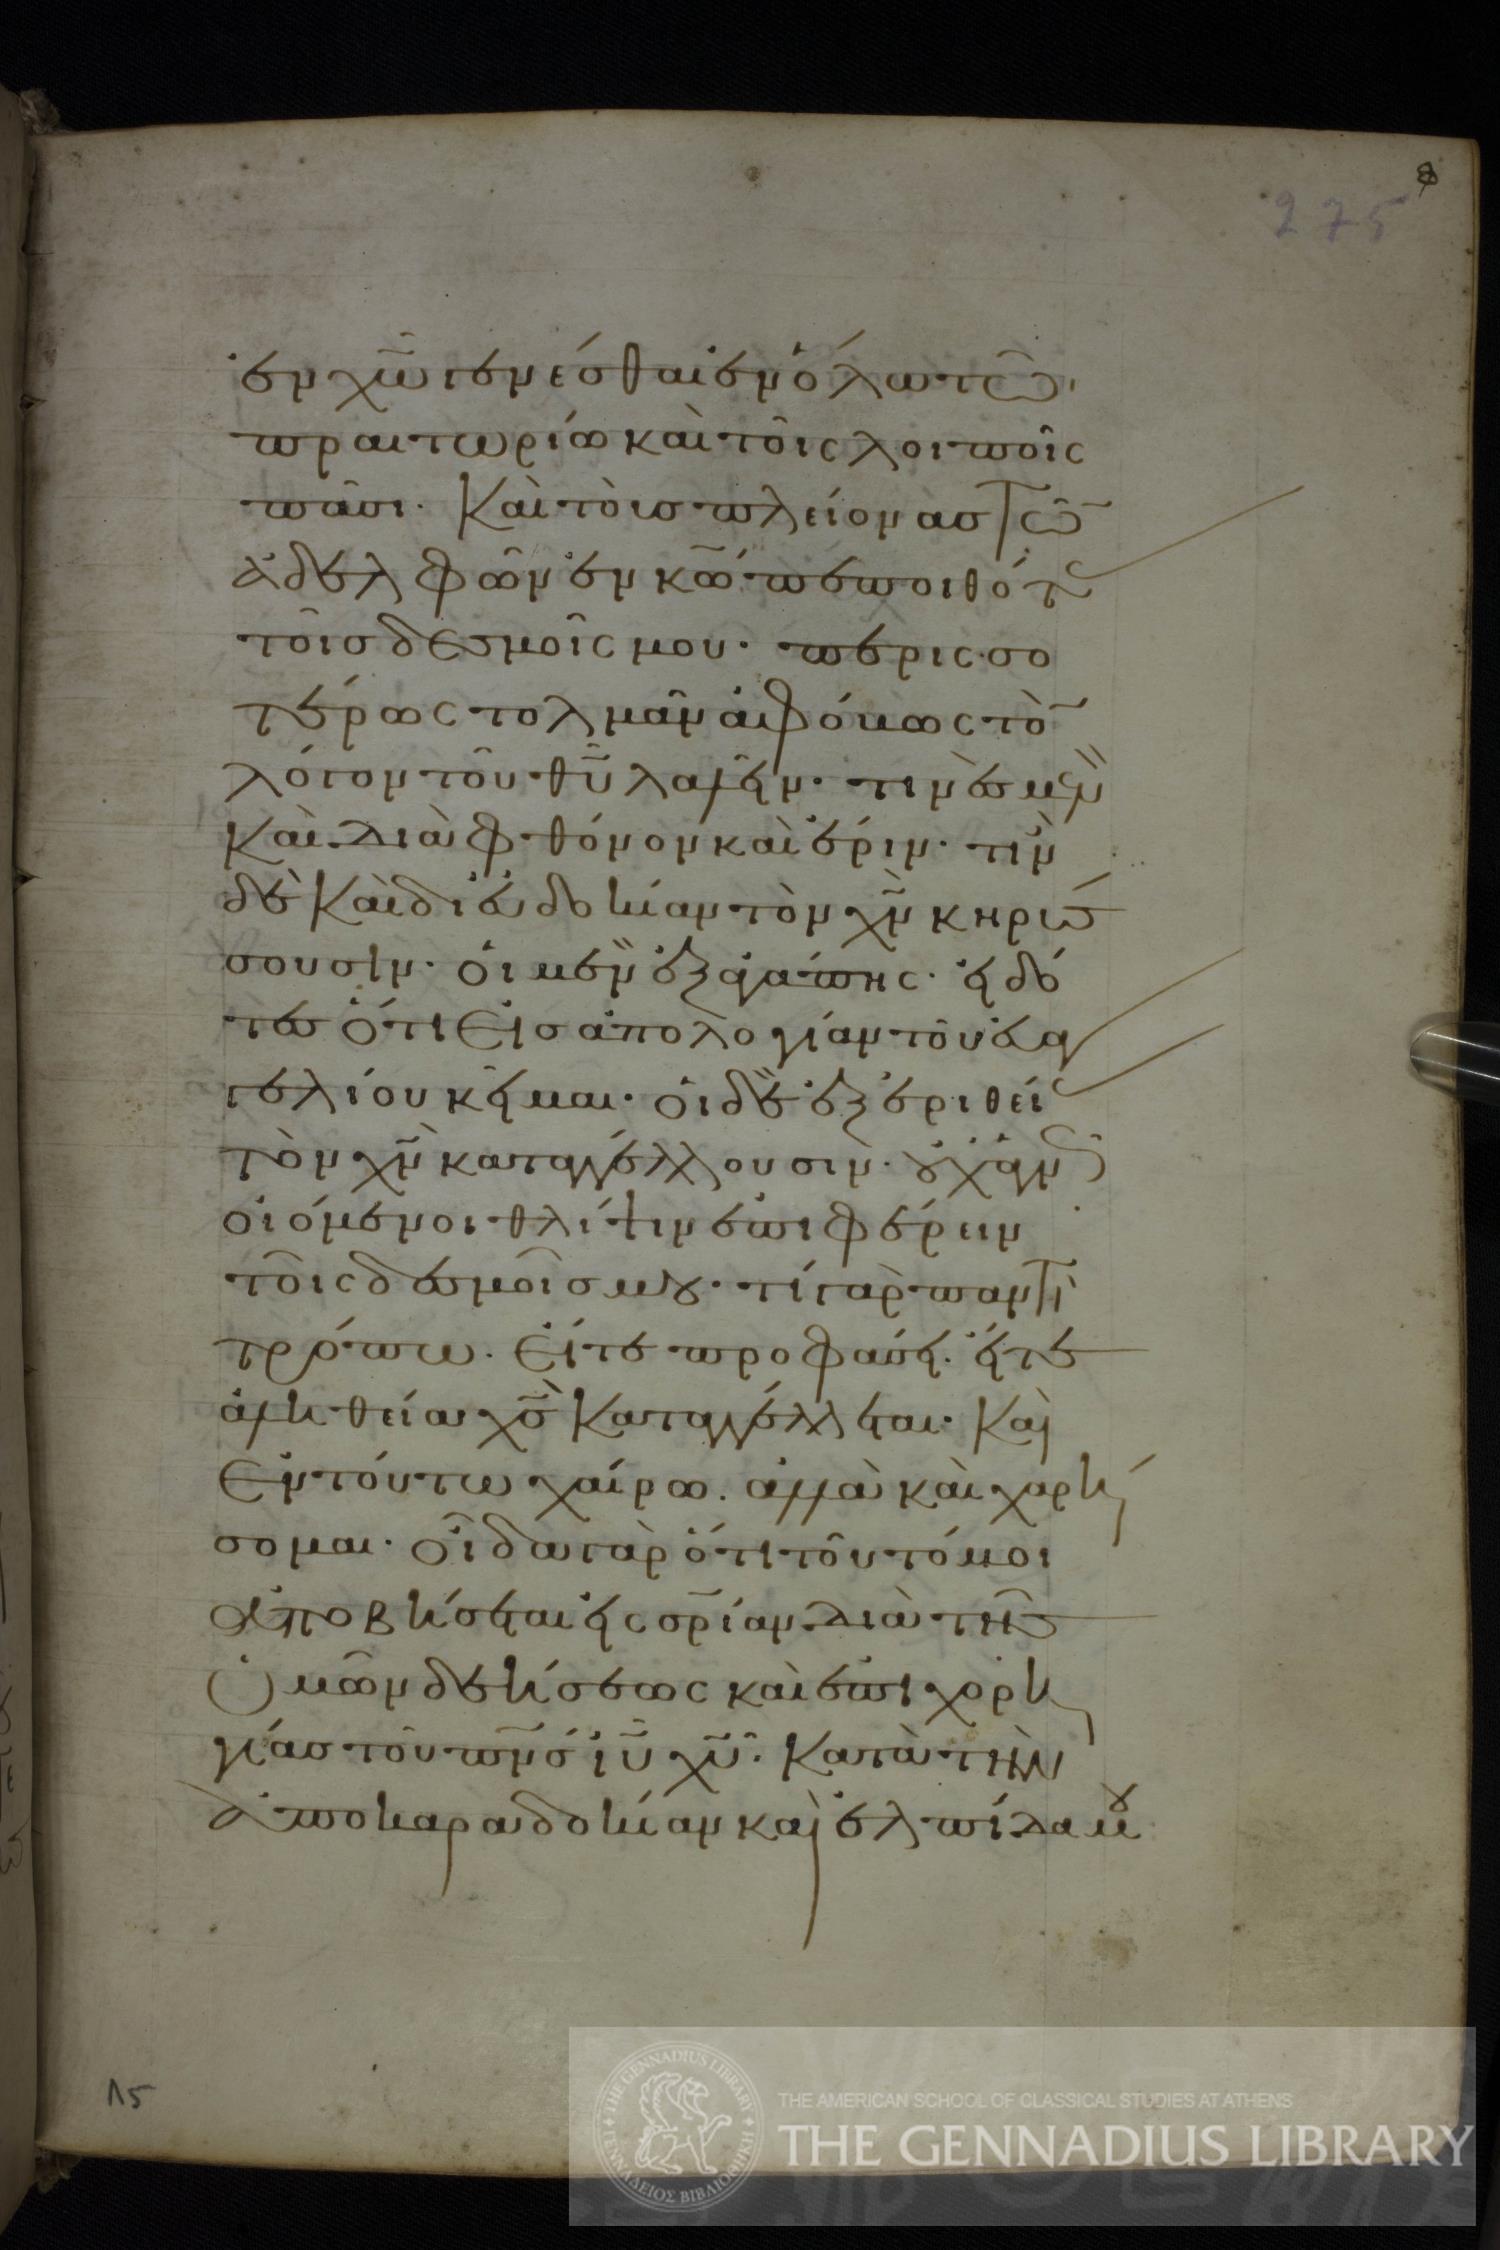 275
ἐν χῶ γενέσθαι ἐν ὅλω τῶ
πραιτωρίω καὶ τοῖς λοιποῖς
πᾶσι. Καὶ τοὺσ πλείονασ τῶ
ἀδελφῶν ἐν κῶ πεποιθότ
τοῖσ δεσμοῖς μου. περισσο
τέρως τολμᾶν ἀφόβως τὸ
λόγον τοῦ θῦ λαλεῖν. τινὲς μὲν
Καὶ διὰ φθόνον καὶ ἔριν. τινὲ
δὲ Καὶ δι εὐδοκίαν τὸν χν κηρύσ
σουσιν. οἱ μὲν ἐξ ἀγάπης. εἰδό
τεσ ὅτι εἰσ ἀπολογίαν τοῦ εὐα
γελίου κεῖμαι. οἱ δὲ ἐξ ἐριθεί
τὸν χν καταγγέλλουσιν. οὐχ ἁγν
οἰόμενοι θλίψιν ἐπιφέρειν
τοῖς δεσμοῖσ μου. τί γὰρ παντὶ
τρόπω. εἴτε προφάσει. εἴτε
ἀληθεία χσ Καταγγέλλεται. Καὶ
ἐν τούτω χαίρω. ἀλλὰ καὶ χαρή
σομαι. οἶδα γὰρ ὅτι τοῦτό μοι
ἀποβήσεται εἰς σρίαν διὰ τῆσ
ὑμῶν δεήσεως καὶ ἐπιχορη
γίασ τοῦ πνσ ιῦ χῦ. Κατὰ τὴν
ἀποκαραδοκίαν καὶ ἐλπίδα μου
15
THE GENNADIUS LIBRARY
ΓΕΝΝΑΔΕΙΟΣ ΒΙΒΛΙΟΘΗΚΗ
THE AMERICAN SCHOOL OF CLASSICAL STUDIES AT ATHENS
THE GENNADIUS LIBRARY